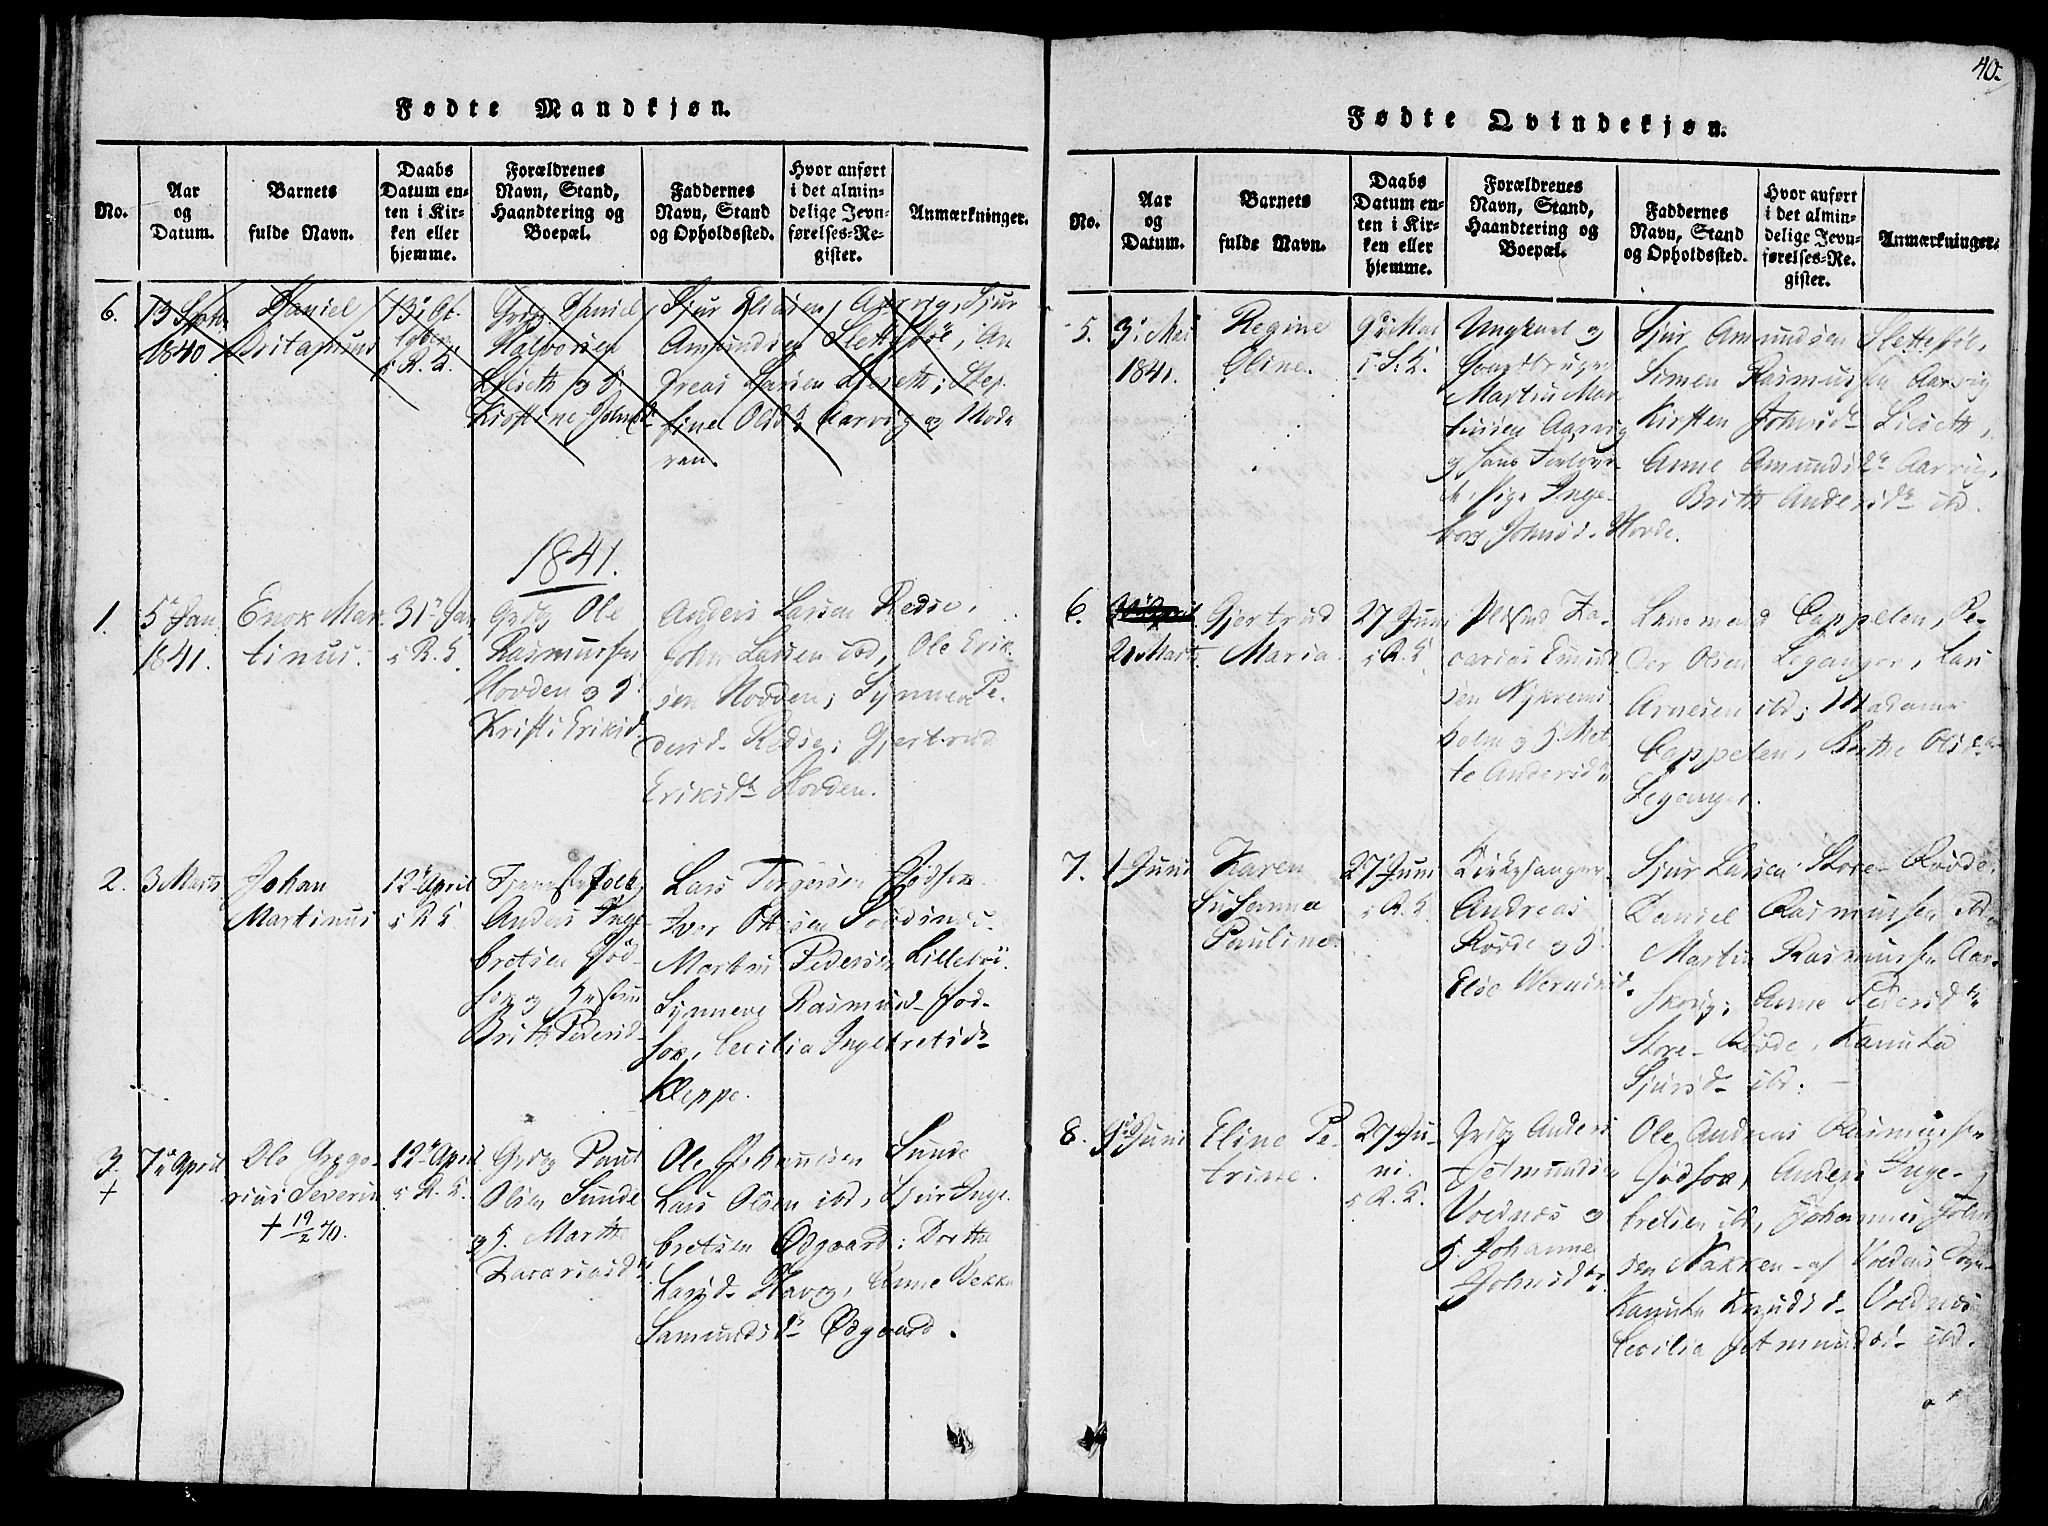 40.
Fødte Mandkjøn.
No.
Aar
og
Datum.
Barnets
fulde Navn.
Daabs
Datum en-
ten i Kir-
ken eller
hjemme.
Forældrenes
Navn, Stand,
Haandtering og
Boepæl.
Faddernes
Navn, Stand
og Opholdssted.
Hvor anført
i det almin-
delige Jevn-
førelses-Re-
gister.
Anmærkninger.
6.
13 Septr
1840.
Daniel
13de Oc-
tober
i R. K.
Grdbr. Daniel
Halvorsen
Liseth og H.
Kirstine Johnsd.
Sjur Eliasen Aarvig, Sjur
Amundsen Slettebøe, An
dreas Larsen Liseth; Ste
Olsdr Aarvig og
1841.
1.
5te Jan
1841.
Enok Mar
tinus.
31te Jan
i R. K.
Grdbr Ole
Rasmussen
Hovden og H.
Kristi Eriksd.
Anders Larsen Redse,
John Larsen ibd, Ole Erik-
sen Hovden; Synneve Pe-
dersd. Redse; Gjertrud
Eriksdr Hovden.
2.
3 Marts
Johan
Martinus
12te April
i R. K.
Tjenestefolk
Anders Inge
bretsen
og Hustru
Brithe Pedersd.
Lars Torgersen
Iver Ottesen
Martin Pedersen Lillebøe.
Synneve Rasmusd.
Cecilia Ingebretsdr
Kleppe.
3.
+
7de April
Ole Grego-
rius Severin
+ 19/2 70.
12te April
i R. K.
Grdbr Paul
Olsen Sunde
og H. Marthe
Zacariasdr.
Ole Johannesen Sunde
Lars Olsen ibd, Sjur Inge
bretsen Ødgaard; Dorthe
Larsd. Havåg, Anne Bekka
Samundsdr Ødgaard.
Fødte Qvindekjøn.
No.
Aar
og
Datum.
Barnets
fulde Navn.
Daabs
Datum en-
ten i Kir-
ken eller
hjemme.
Forældrenes
Navn, Stand,
Haandtering og
Boepæl.
Faddernes
Navn, Stand
og Opholdssted.
Hvor anført
i det almin-
delige Jevn-
førelses-Re-
gister.
Anmærkninger.
5.
3die Mai
1841.
Regine
Oline.
9de Mai
i S. K.
Ungkarl og
Gaardbruger
Martin Mar
tinsen Aarvig
og hans Forlove
de, Pige Inge-
borg Johnsd. Hovde.
Sjur Amundsen Slettebøe,
Simen Rasmussen Aarvig
Kirsten Johnsdr Liseth,
Anne Amundsdr Aarvig,
Brithe Andersdr ibd.
6.
21 Marts.
Gjertrud
Maria.
27 Juni
i R. K.
Za-
carias Emund
sen
holm og H. Met-
te Andersdr.
Lensmand Cappelen, Pe-
der Olsen Leganger, Lars
Arnesen ibd; Madame
Cappelen, Berthe Olsdr
Leganger.
7.
1 Juni
Karen
Susanna
Pauline.
27de Juni
i R. K.
Kirkesanger
Andreas
Røvde og H.
Else Wernersd.
Sjur Larsen Store-Røvde.
Daniel Rasmussen ibd.
Martin Rasmussen Aar-
skoug; Anne Pedersdr
Store-Røvde, Kanutta
Sjursd. ibd.
8.
9de Juni
Eline Pe-
trine.
27 Ju-
ni.
i R. K.
Grdbr Anders
Jetmundsen
Voldnæs og
H. Johanne
Johnsdr.
Ole Andreas Rasmussen
Anders Inge-
bretsen ibd, Johannes John
sen Nakken af Voldens Sogn-
Kanutta Knudsd. Voldnæs
Cecilia Jetmundsd. ibd.